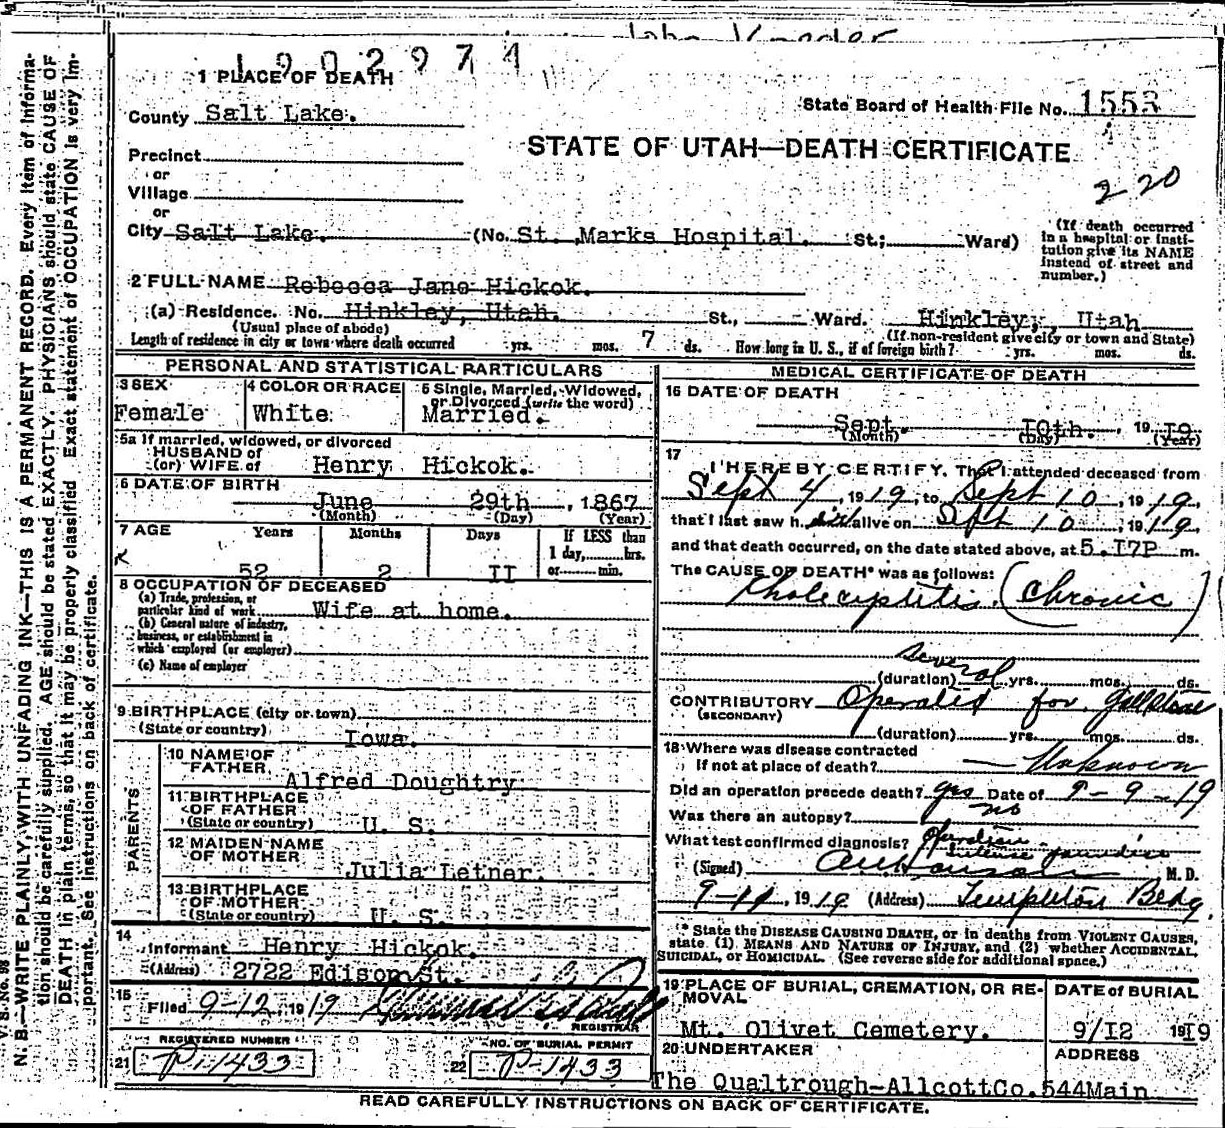 1902971
1 PLACE OF DEATH
State Board of Health File No. 1553
County Salt Lake.
STATE OF UTAH—DEATH CERTIFICATE
Precinct
or
Village
220
or
City Salt Lake. (No. St. Marks Hospital. St.; Ward)
(If death occurred in a hospital or institution give its NAME instead of street and number.)
2 FULL NAME Rebecca Jane Hickok.
(a) Residence. No. Hinkley, Utah. St., Ward. Hinkley, Utah
(Usual place of abode) (If non-resident give city or town and State)
Length of residence in city or town where death occurred yrs. mos. 7 ds. How long in U. S., if of foreign birth? yrs. mos. ds.
PERSONAL AND STATISTICAL PARTICULARS
3 SEX Female
4 COLOR OR RACE White
5 Single, Married, Widowed, or Divorced (write the word) Married.
5a If married, widowed, or divorced
HUSBAND of
(or) WIFE of Henry Hickok.
6 DATE OF BIRTH
June 29th, 1867
(Month) (Day) (Year)
7 AGE Years Months Days If LESS than
1 day,........hrs.
52 2 II or........min.
8 OCCUPATION OF DECEASED
(a) Trade, profession, or
particular kind of work Wife at home.
(b) General nature of industry,
business, or establishment in
which employed (or employer)
(c) Name of employer
9 BIRTHPLACE (city or town)
(State or country) Iowa.
PARENTS
10 NAME OF
FATHER Alfred Doughtry
11 BIRTHPLACE
OF FATHER
(State or country) U. S.
12 MAIDEN NAME
OF MOTHER Julia Letner.
13 BIRTHPLACE
OF MOTHER
(State or country) U. S.
14
Informant Henry Hickok.
(Address) 2722 Edison St.
15
Filed 9-12, 1919
REGISTRAR
REGISTERED NUMBER
21 P-1433
NO. OF BURIAL PERMIT
22 P-1433
MEDICAL CERTIFICATE OF DEATH
16 DATE OF DEATH
Sept. IOth., 19 I9
(Month) (Day) (Year)
17
I HEREBY CERTIFY, That I attended deceased from
Sept 4, 1919, to Sept 10, 1919,
that I last saw h er alive on Sept 10, 1919
and that death occurred, on the date stated above, at 5.I7P m.
The CAUSE OF DEATH* was as follows:
Cholecystitis (Chronic)
several
(duration) yrs. mos. ds.
CONTRIBUTORY Operated for gallstone
(SECONDARY)
(duration) yrs. mos. ds.
18 Where was disease contracted
If not at place of death? — Unknown
Did an operation precede death? yes Date of 9-9-19
Was there an autopsy? no
What test confirmed diagnosis? Operation
intense jaundice
(Signed) M. D.
9-11, 1919 (Address) Templeton Bldg.
* State the DISEASE CAUSING DEATH, or in deaths from VIOLENT CAUSES,
state (1) MEANS AND NATURE OF INJURY, and (2) whether ACCIDENTAL,
SUICIDAL, or HOMICIDAL. (See reverse side for additional space.)
19 PLACE OF BURIAL, CREMATION, OR REMOVAL
Mt. Olivet Cemetery.
DATE of BURIAL
9/I2 1919
20 UNDERTAKER
The Qualtrough-AllcottCo.
ADDRESS
544Main
READ CAREFULLY INSTRUCTIONS ON BACK OF CERTIFICATE.
V. S. No. 98
N. B.—WRITE PLAINLY, WITH UNFADING INK—THIS IS A PERMANENT RECORD. Every item of information should be carefully supplied. AGE should be stated EXACTLY. PHYSICIANS should state CAUSE OF DEATH in plain terms, so that it may be properly classified. Exact statement of OCCUPATION is very important. See instructions on back of certificate.